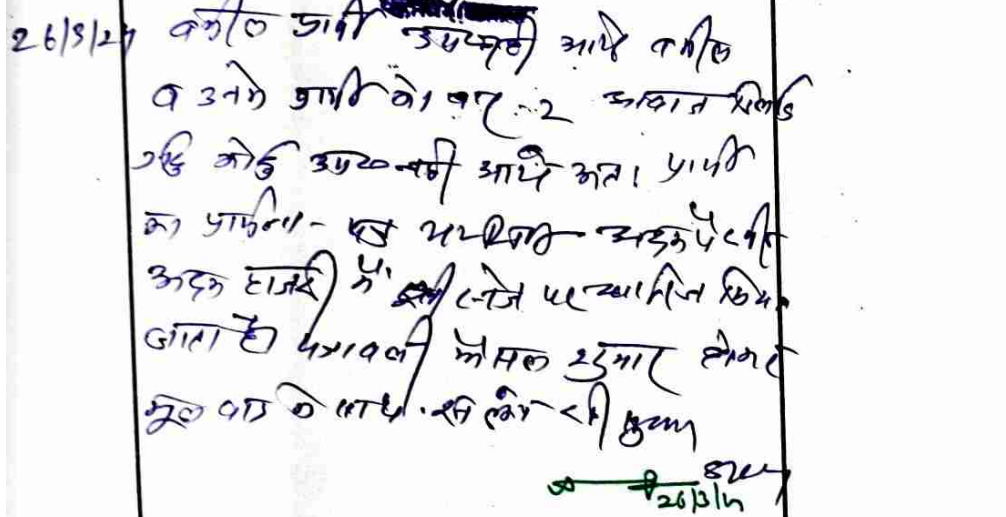 26/3/24 वकील प्रार्थी उप० नही आये वकील
व उनके प्रार्थी को बार-2 आवाज दिलाई
गई कोई उप० नही आये अतः प्रार्थी
का प्रार्थना-पत्र अदम पैरवी
अदम हाजरी में इसी स्टेज पर खारिज किया
जाता है पत्रावली फैसल शुमार होकर
मूल वाद के साथ संलग्न रहे
26/3/24